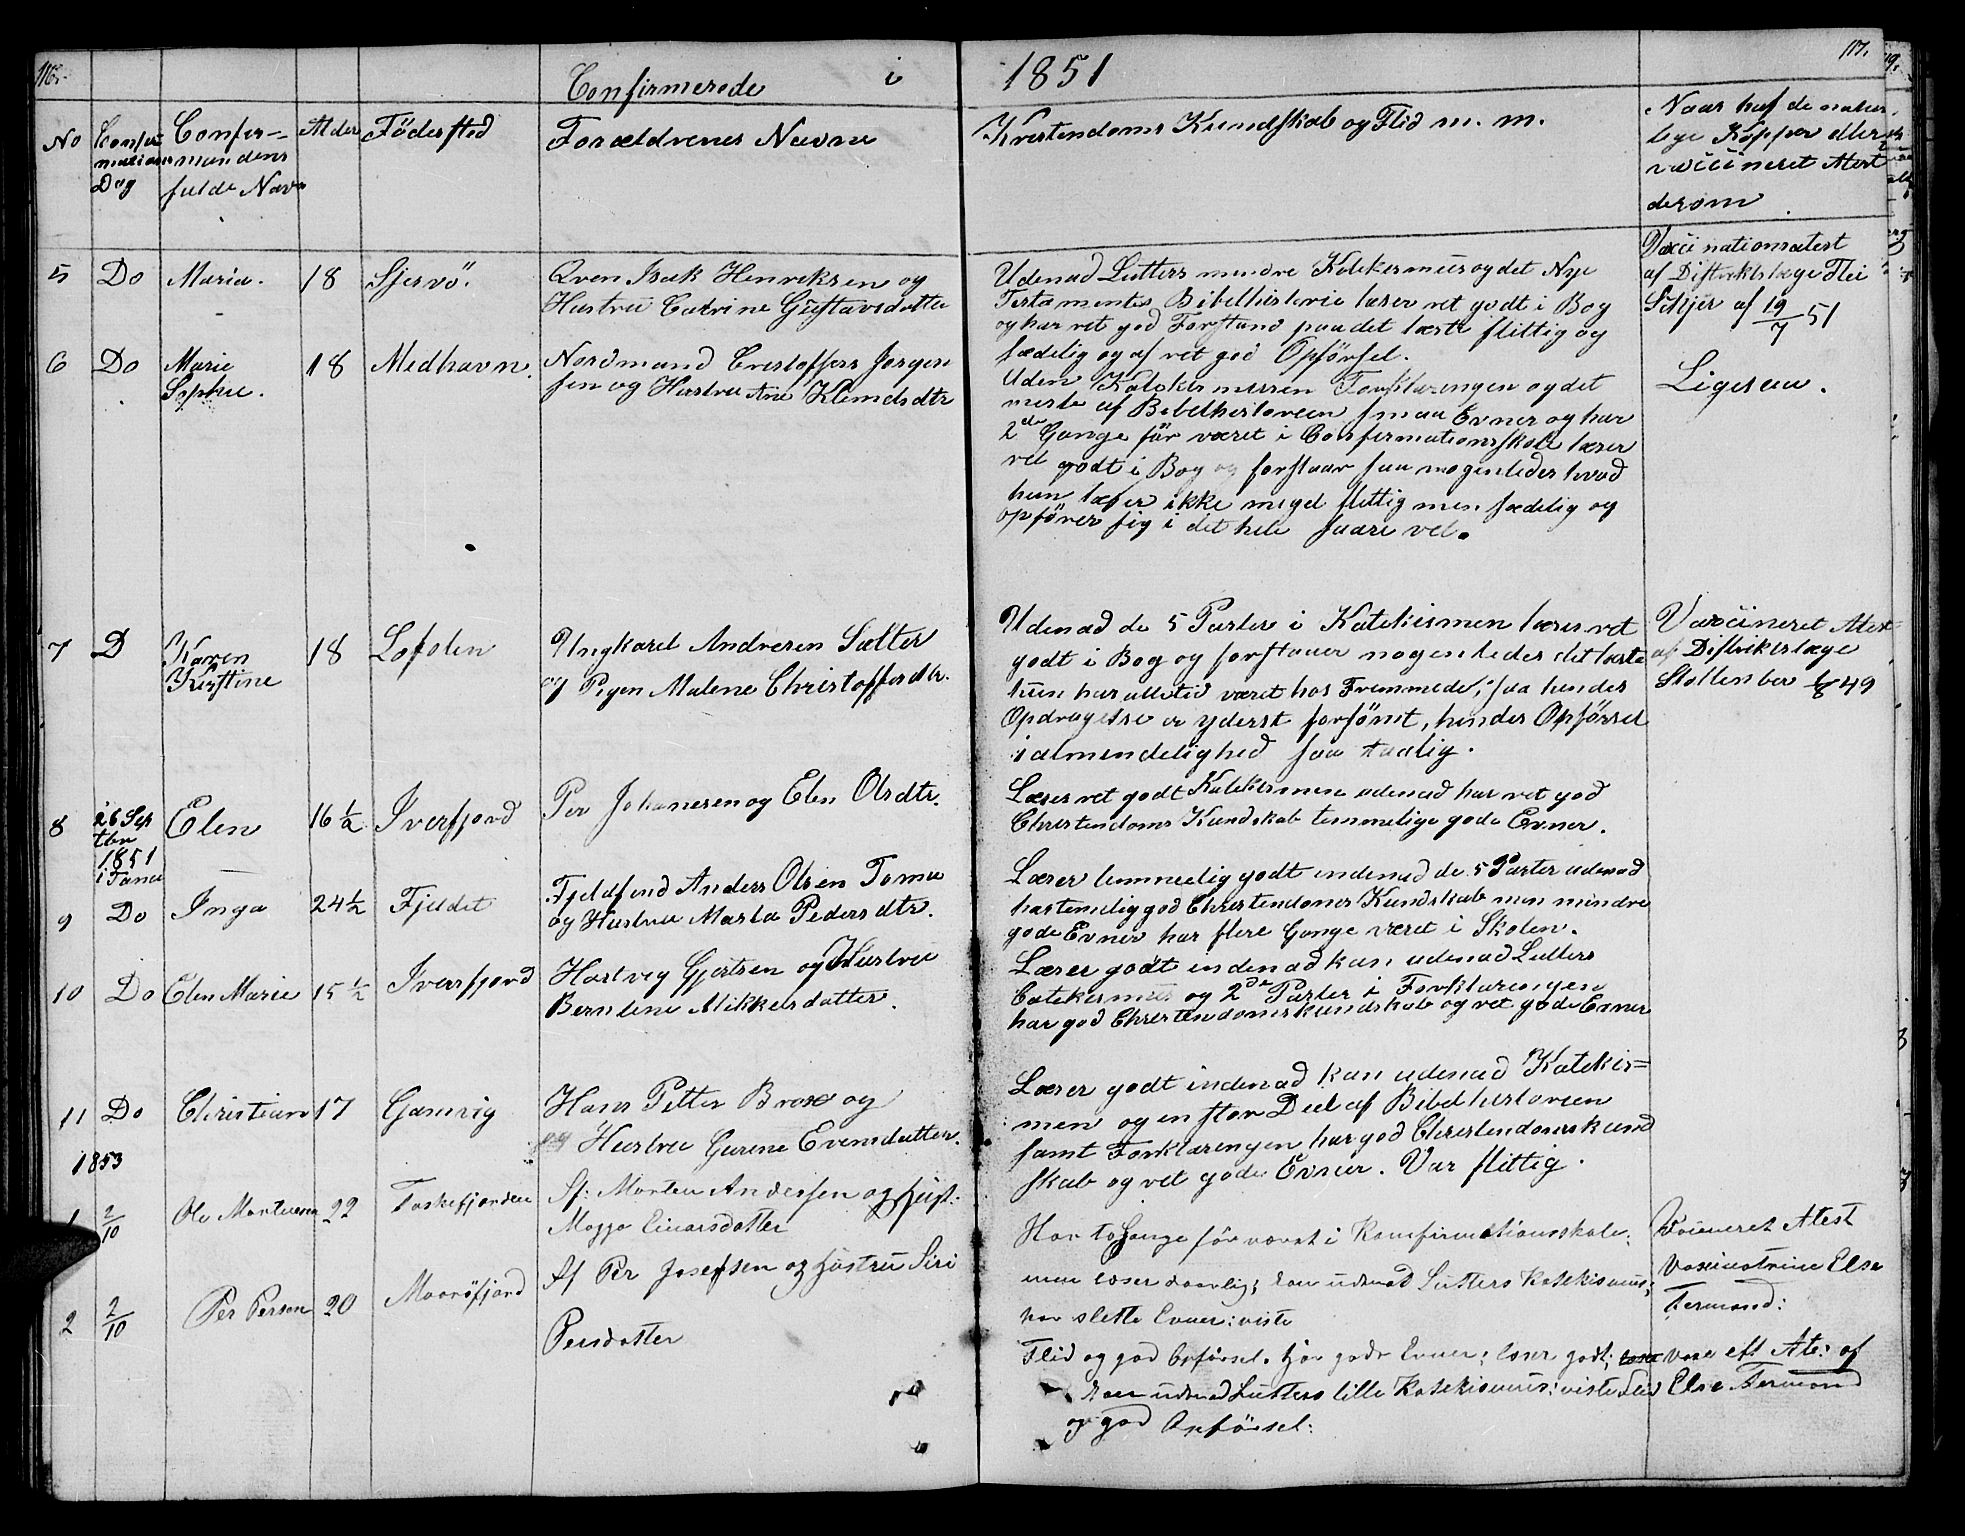 116.
Confirmerede i 1851
117.
No
Confirmations Dag
Confirmandens fulde Navn
Alder
Födested
Forældrenes Navne
Kristendoms Kundskab og Flid m. m.
Naar haft de naturlige Kopper eller vaccineret Atest derom
5 Do Maria. 18 Sjervö.
Qven Isak Henriksen og
Hustru Catrine Gustavsdatter
Udenad Lutters mindre Katekismus og det Nye
Testamentes Bibelhistorie læser ret godt i Bog
og har ret god Forstand paa det læste flittig og
sædelig og af ret god Opförsel.
Vaccinationsatest
af Distriktslæge
af 19/7 51
6 Do Marie Sophie. 18 Medhavn.
Nordmand Cristoffer Jörgen
sen og Hustru Ane Klemdsdtr
Uden Katekismusen Forklaringen og det
meste af Bibelhistorien smaa Evner og har
2de Gange för været i Confirmationsskole læser
ret godt i Bog og forstaar saa nogenledes hvad
hun læser ikke meget flittig men sædelig og
opförer sig i det hele saare vel.
Ligesaa.
7 D Karen Kirstine 18 Lofoten
Ungkarl Andreren Sætter
og Pigen Malene Christoffersdtr.
Udenad de 5 Parter i Katekismen læser ret
godt i Bog og forstaaer nogenledes det læste
hun har altetid været hos Fremmede, saa hendes
Opdragelse er yderst forsömt, hendes Opförsel
i almendelighed saa taalig.
Vaccineret Atest
af Distrikslæge
Stoltenber 49
8 26 Septbr 1851 i Tana Elen 16½ Iverfjord
Per Johanesen og Elen Olsdtr.
Læser ret godt Katekismen udenad har ret god
Christendoms Kundskab temmelige gode Evner.
9 Do Inga 24½ Fjeldet
Fjeldfind Anders Olsen Toma
og Hustru Marta Pedersdtr.
Læser temmelig godt indenad de 5 Parter udenad
har temlig god Christendoms Kundskab men mindre
gode Evner har flere Gange været i Skolen.
10 Do Elen Marie 15½ Iversfjord
Hartvig Gjertsen og Hustru
Berntine Mikkelsdatter.
Læser godt indenad kan udenad Lutters
Catekismus og 2de Parter i Forklaringen
har god Christendomskundskab og ret gode Evner
11 Do Christian 17 Gamvig
Hans Petter Brox og
og Hustru Gurine Evensdatter.
Læser godt indenad kan udenad Katekis=
men og en stor Deel af Bibelhistorien
samt Forklaringen har god Christendomskund
skab og ret gode Evner. Var flittig.
1853
1 2/10 Ole Mortensen 22 Taskefjorden
Af: Morten Andersen og Hust:
Magga Einarsdatter
Har to Gange för været i Konfirmationsskole;
men læser daarlig; kan udenad Lutters Katekismus;
har slette Evner: viste
Flid og god Opförsel.
Vacineret Atest
Vaxinatrine Else
Fermand:
2 2/10 Per Persen 20 Maaröfjord
Af Per Josefsen og Hustru Siri
Persdatter
Har gode Evner; læser godt; læser
kan udenad Lutters lille Katekismus: viste Flid
og god Opförsel:
Vaxe eft Ate: af
Else Fermand